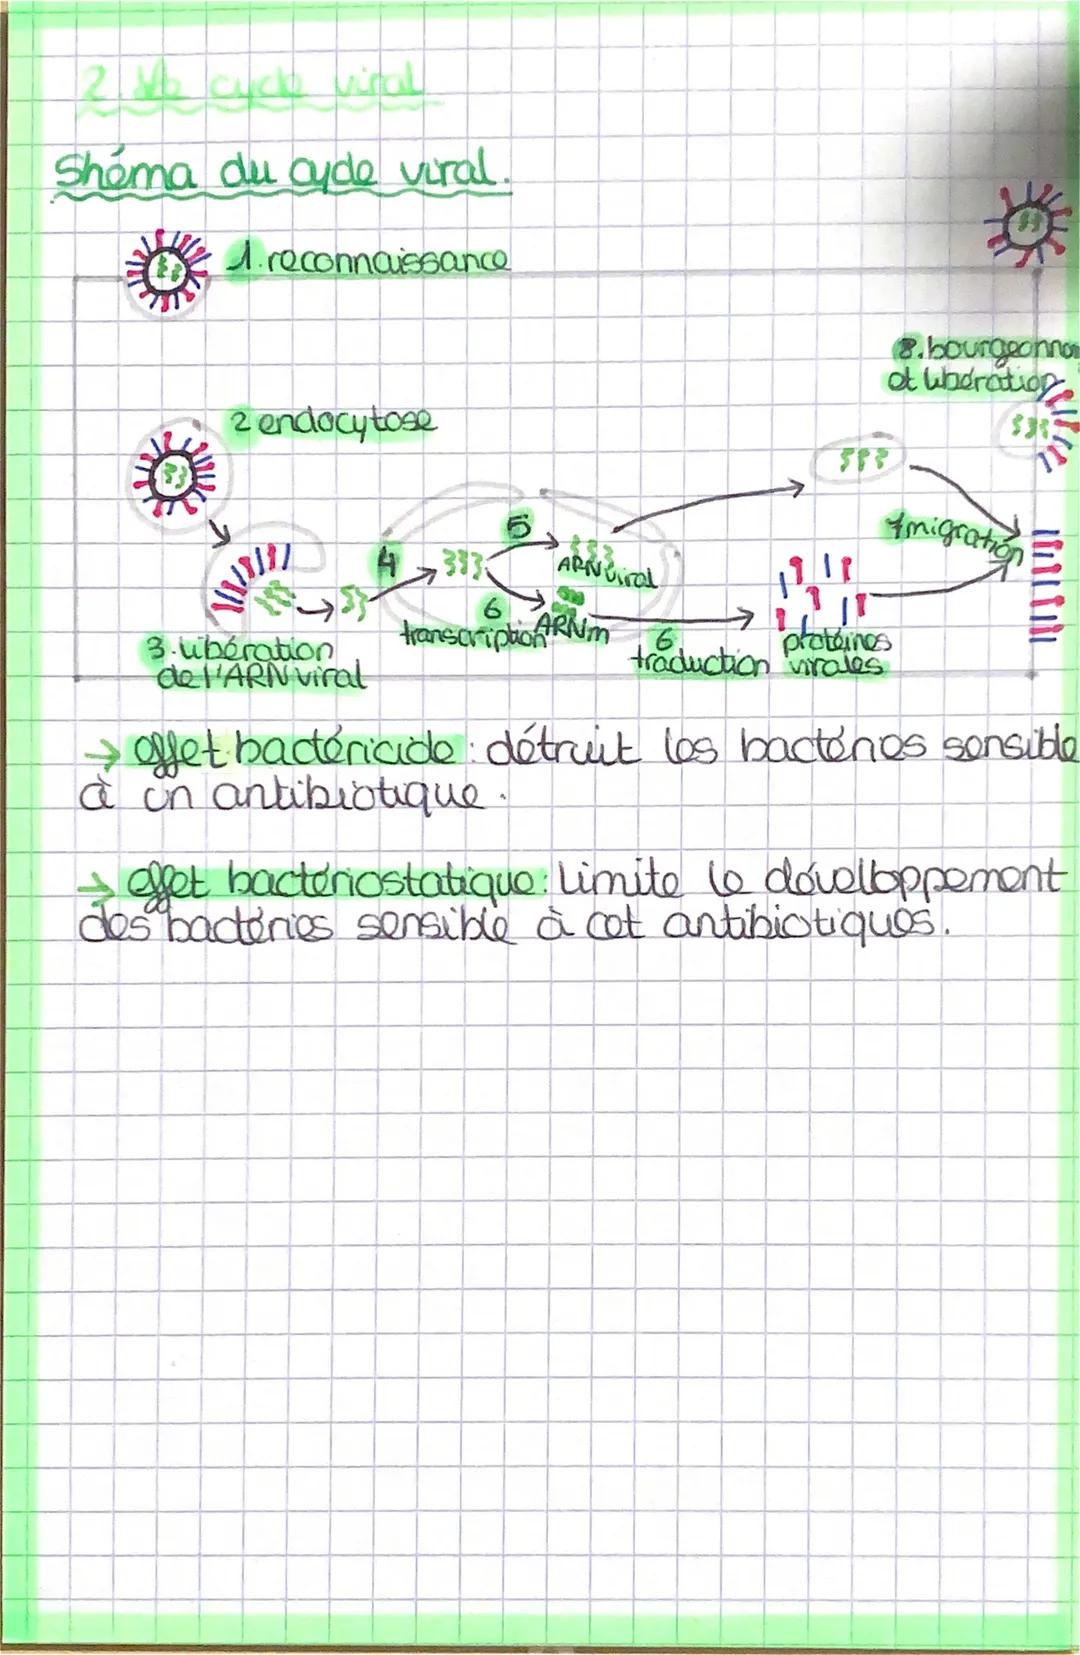 2. Le cycle viral
Shéma du cycle viral.
1. reconnaissance
8. bourgeonne
et libération
2 endocytose
5
4
7 migration
ARN viral
6
transcription
ARNm
6
traduction
protéines
virales
3. libération
de l'ARN viral
→ effet bactéricide : détruit les bactéries sensible
à un antibiotique.
→ effet bactériostatique : Limite le dévelloppement
des bactéries sensible à cet antibiotiques.